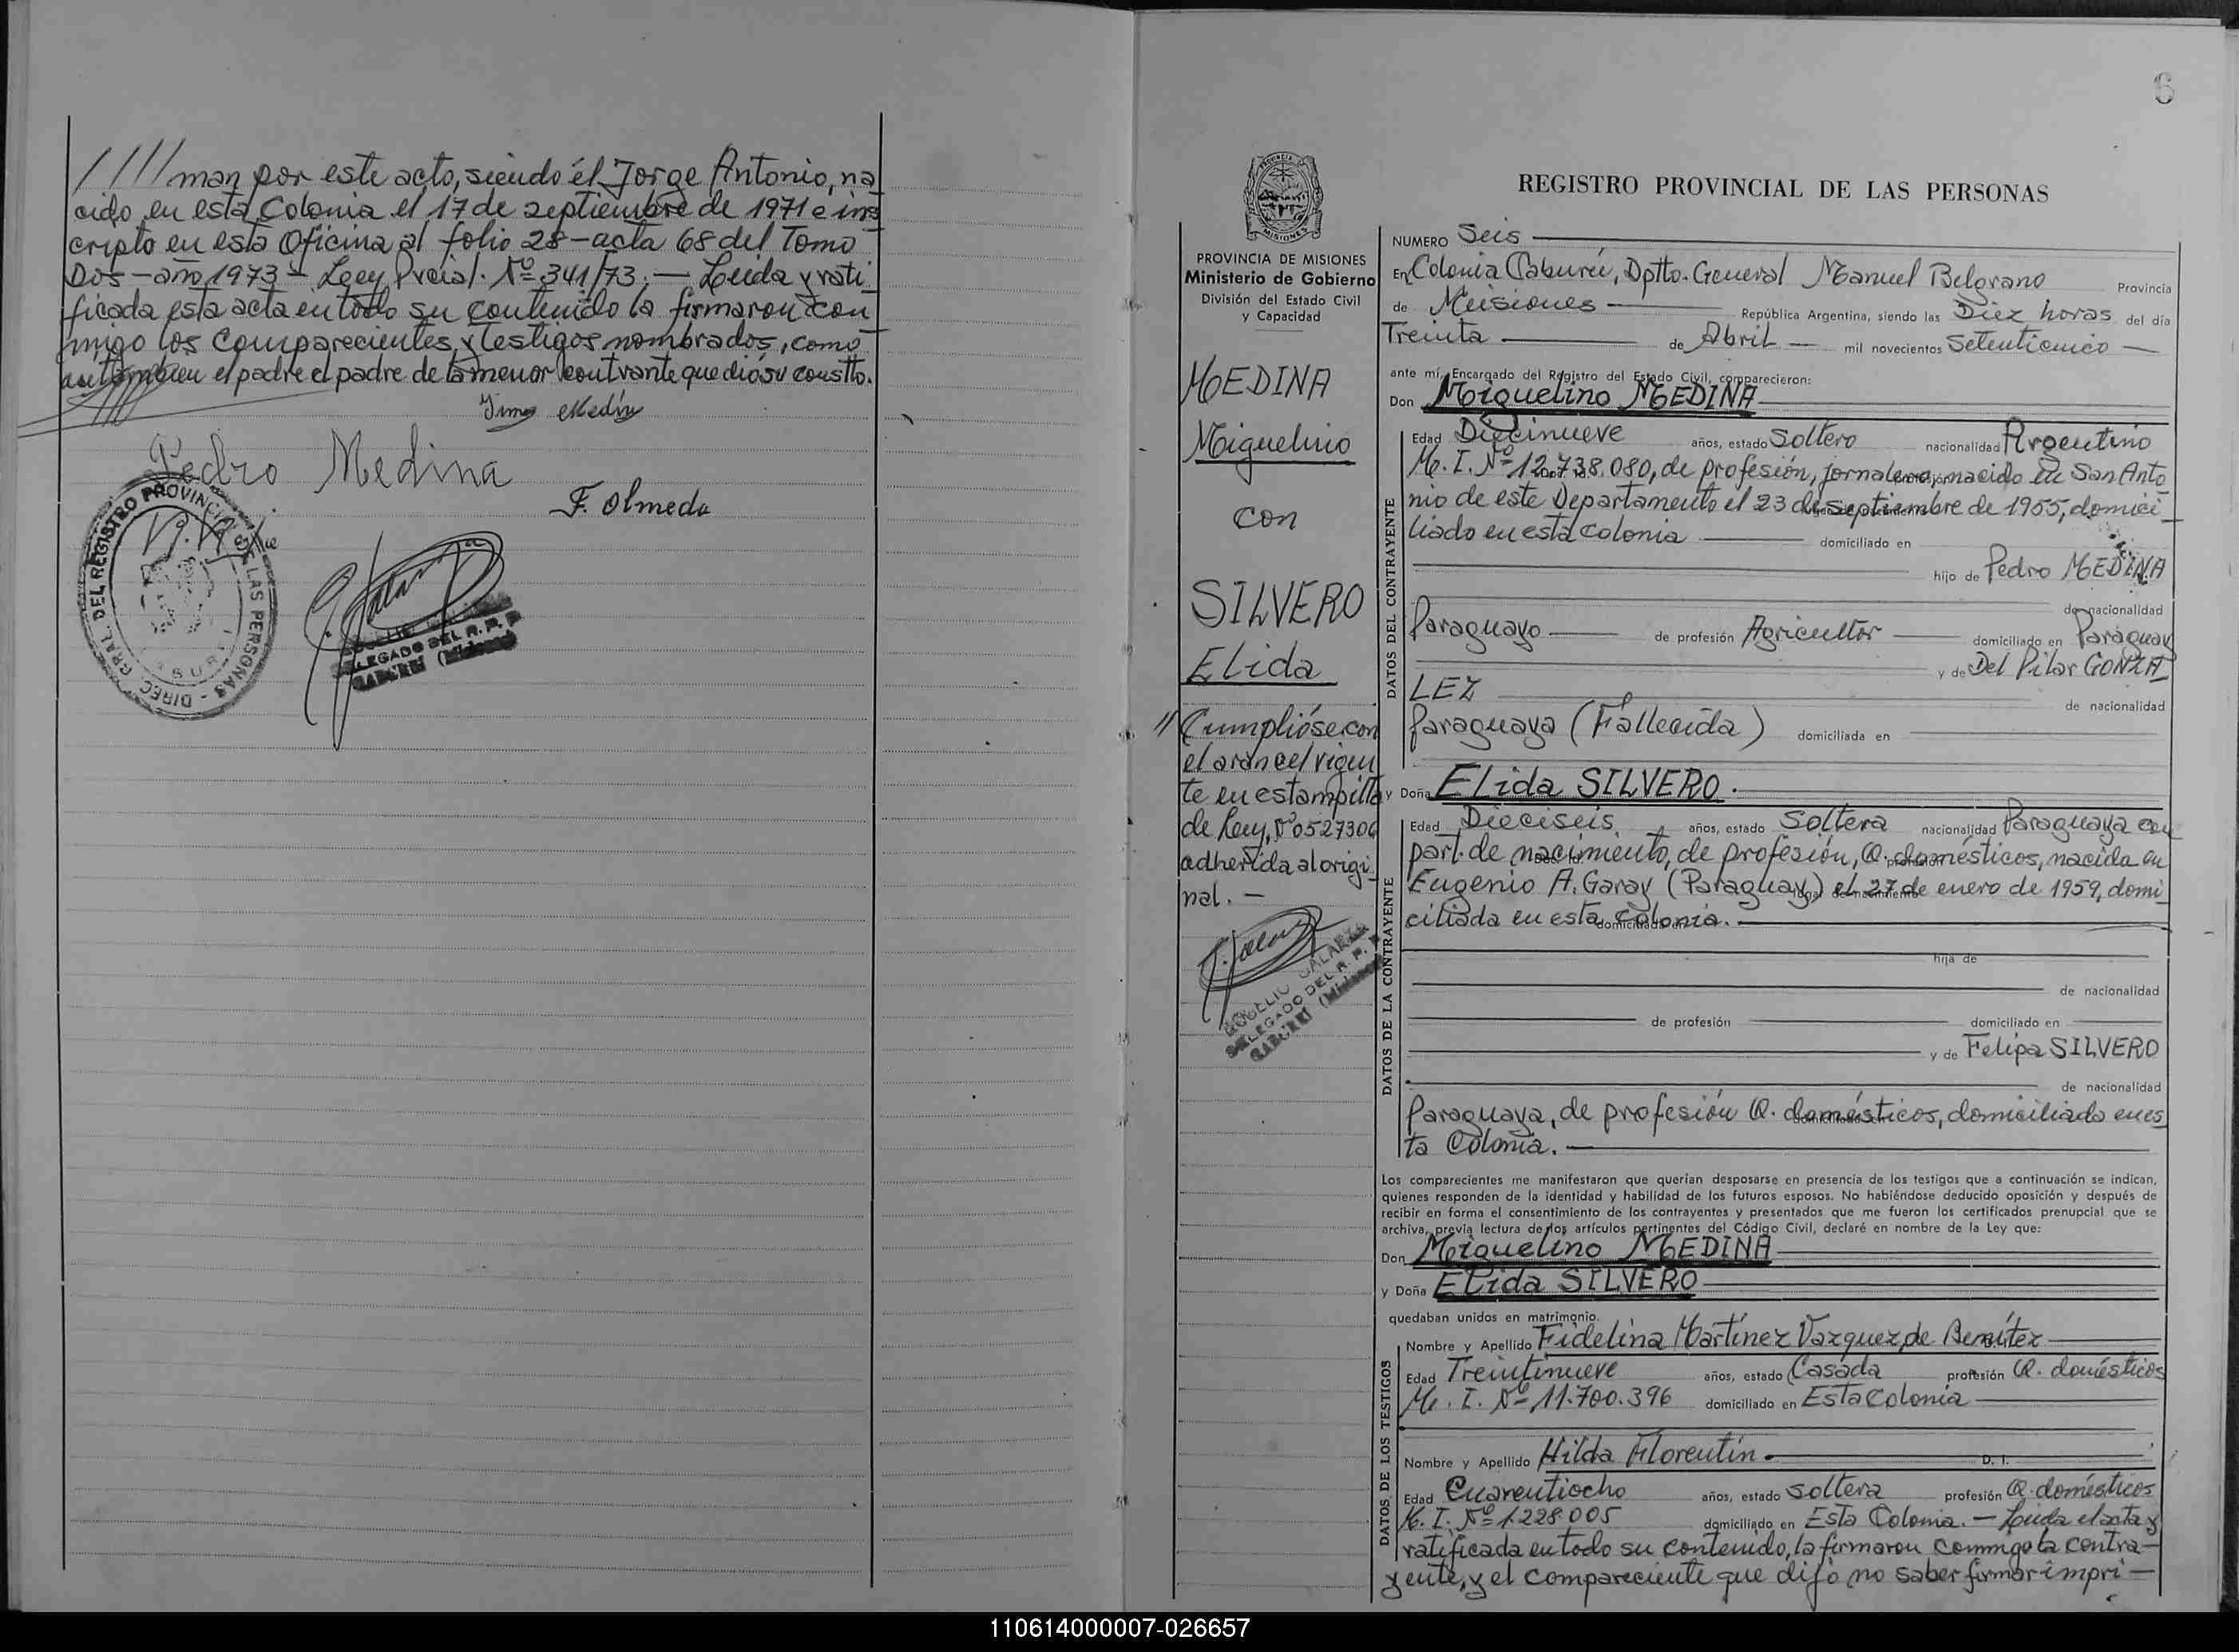 //// man por este acto, siendo él Jorge Antonio, na
cido en esta Colonia el 17 de septiembre de 1971 e ins
cripto en esta Oficina al folio 28 - acta 68 del Tomo
Dos - año 1973 - Ley Prcial. Nº 341/73. - Leida y rati
ficada esta acta en todo su contenido la firmaron con
migo los Comparecientes y testigos nombrados, como
asi tambien el padre el padre de la menor contrvante que dió su constto.
Medin
Pedro Medina
F. Olmedo
DIREC. GRAL. DEL REGISTRO PROVINCIAL DE LAS PERSONAS
DELEGADO DEL R. P. P.
CABUREI (Misiones)
6
PROVINCIA DE MISIONES
Ministerio de Gobierno
División del Estado Civil
y Capacidad
MEDINA
Miguelino
con
SILVERO
Elida
// Cumplióse con
el arancel vigen
te en estampilla
de Ley, Nº 0527306
adherida al origi
nal. -
ROGELIO GALARZA
DELEGADO DEL R. P. P.
CABUREI (Misiones)
REGISTRO PROVINCIAL DE LAS PERSONAS
NUMERO Seis
En Colonia Caburei, Dptto. General Manuel Belgrano Provincia
de Misiones República Argentina, siendo las Diez horas del día
Treinta de Abril mil novecientos Setenticinco
ante mí, Encargado del Registro del Estado Civil, comparecieron:
Don Miguelino MEDINA
DATOS DEL CONTRAYENTE
Edad Diecinueve años, estado Soltero nacionalidad Argentino
M. I. Nº 12.738.080, de profesión, jornalero, nacido en San Anto
nio de este Departamento el 23 de septiembre de 1955, domici
liado en esta colonia domiciliado en
hijo de Pedro MEDINA
de nacionalidad
Paraguayo de profesión Agricultor domiciliado en Paraguay
y de Del Pilar GONZA
LEZ
de nacionalidad
Paraguaya (Fallecida) domiciliada en
y Doña Elida SILVERO.
DATOS DE LA CONTRAYENTE
Edad Dieciseis años, estado Soltera nacionalidad Paraguaya con
part. de nacimiento, de profesión, Q. domésticos, nacida en
Eugenio A. Garay (Paraguay) el 27 de enero de 1959, domi
ciliada en esta colonia.
hija de
de nacionalidad
de profesión domiciliado en
y de Felipa SILVERO
de nacionalidad
Paraguaya, de profesión Q. domésticos, domiciliada en es
ta Colonia.
Los comparecientes me manifestaron que querían desposarse en presencia de los testigos que a continuación se indican,
quienes responden de la identidad y habilidad de los futuros esposos. No habiéndose deducido oposición y después de
recibir en forma el consentimiento de los contrayentes y presentados que me fueron los certificados prenupcial que se
archiva, previa lectura de los artículos pertinentes del Código Civil, declaré en nombre de la Ley que:
Don Miguelino MEDINA
y Doña Elida SILVERO
quedaban unidos en matrimonio.
DATOS DE LOS TESTIGOS
Nombre y Apellido Fidelina Martínez Vazquez de Benítez
Edad Treintinueve años, estado Casada profesión Q. domésticos
M. I. Nº 11.700.396 domiciliado en Esta Colonia
Nombre y Apellido Hilda Florentin D. I.
Edad Cuarentiocho años, estado soltera profesión Q. domésticos
M. I. Nº 1.228.005 domiciliado en Esta Colonia. - Leida el acta y
ratificada en todo su contenido, la firmaron conmigo la contra-
yente, y el compareciente que dijo no saber firmar impri -
110614000007-026657